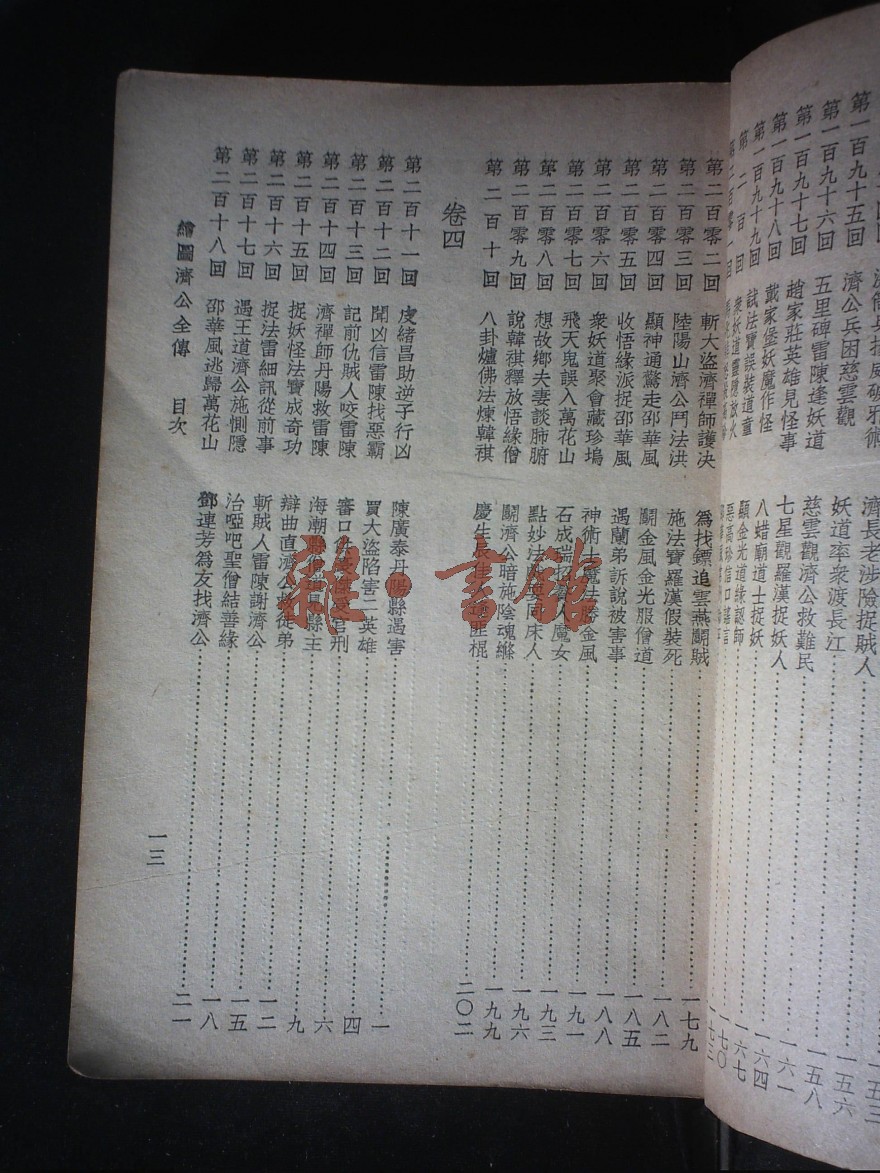 第一百九十五回 濟公兵困慈雲觀 濟長老涉險捉賊人 一五三
第一百九十六回 五里碑雷陳逢妖道 妖道率衆渡長江 一五六
第一百九十七回 趙家莊英雄見怪事 慈雲觀濟公救難民 一五八
第一百九十八回 戴家堡妖魔作怪 七星觀羅漢捉妖人 一六一
第一百九十九回 試法寶誤裝道童 八蜡廟道士捉妖 一六四
第二百回 衆妖道靈隱放火 顯金光道緣認師 一六七
惡高珍信口謠言 一七〇
一七三
第二百零二回 斬大盜濟禪師護决 爲找鏢追雲燕鬭賊
第二百零三回 陸陽山濟公鬥法洪 施法寶羅漢假裝死 一七九
第二百零四回 顯神通驚走邵華風 鬭金風金光服僧道 一八二
第二百零五回 收悟緣派捉邵華風 遇蘭弟訴說被害事 一八五
第二百零六回 衆妖道聚會藏珍塢 神術士魔法勝金風 一八八
第二百零七回 飛天鬼誤入萬花山 石成瑞招贅入魔女 一九一
第二百零八回 想故鄉夫妻談肺腑 點妙法戲耍同床人 一九三
第二百零九回 說韓祺釋放悟緣僧 鬭濟公暗施陰魂縧 一九六
第二百十回 八卦爐佛法煉韓祺 慶生辰佳人遇匪棍 一九九
二〇二
卷四
第二百十一回 虔緒昌助逆子行凶 陳廣泰丹陽縣遇害 一
第二百十二回 聞凶信雷陳找惡霸 買大盜陷害二英雄 四
第二百十三回 記前仇賊人咬雷陳 審口供 官刑 六
第二百十四回 濟禪師丹陽救雷陳 海潮縣 縣主 九
第二百十五回 捉妖怪法寶成奇功 辯曲直濟公救徒弟 一二
第二百十六回 捉法雷細訊從前事 斬賊人雷陳謝濟公 一五
第二百十七回 遇王道濟公施惻隱 治啞吧聖僧結善緣 一八
第二百十八回 邵華風逃歸萬花山 鄧連芳爲友找濟公 二一
繪圖濟公全傳 目次
一三
雜·書館